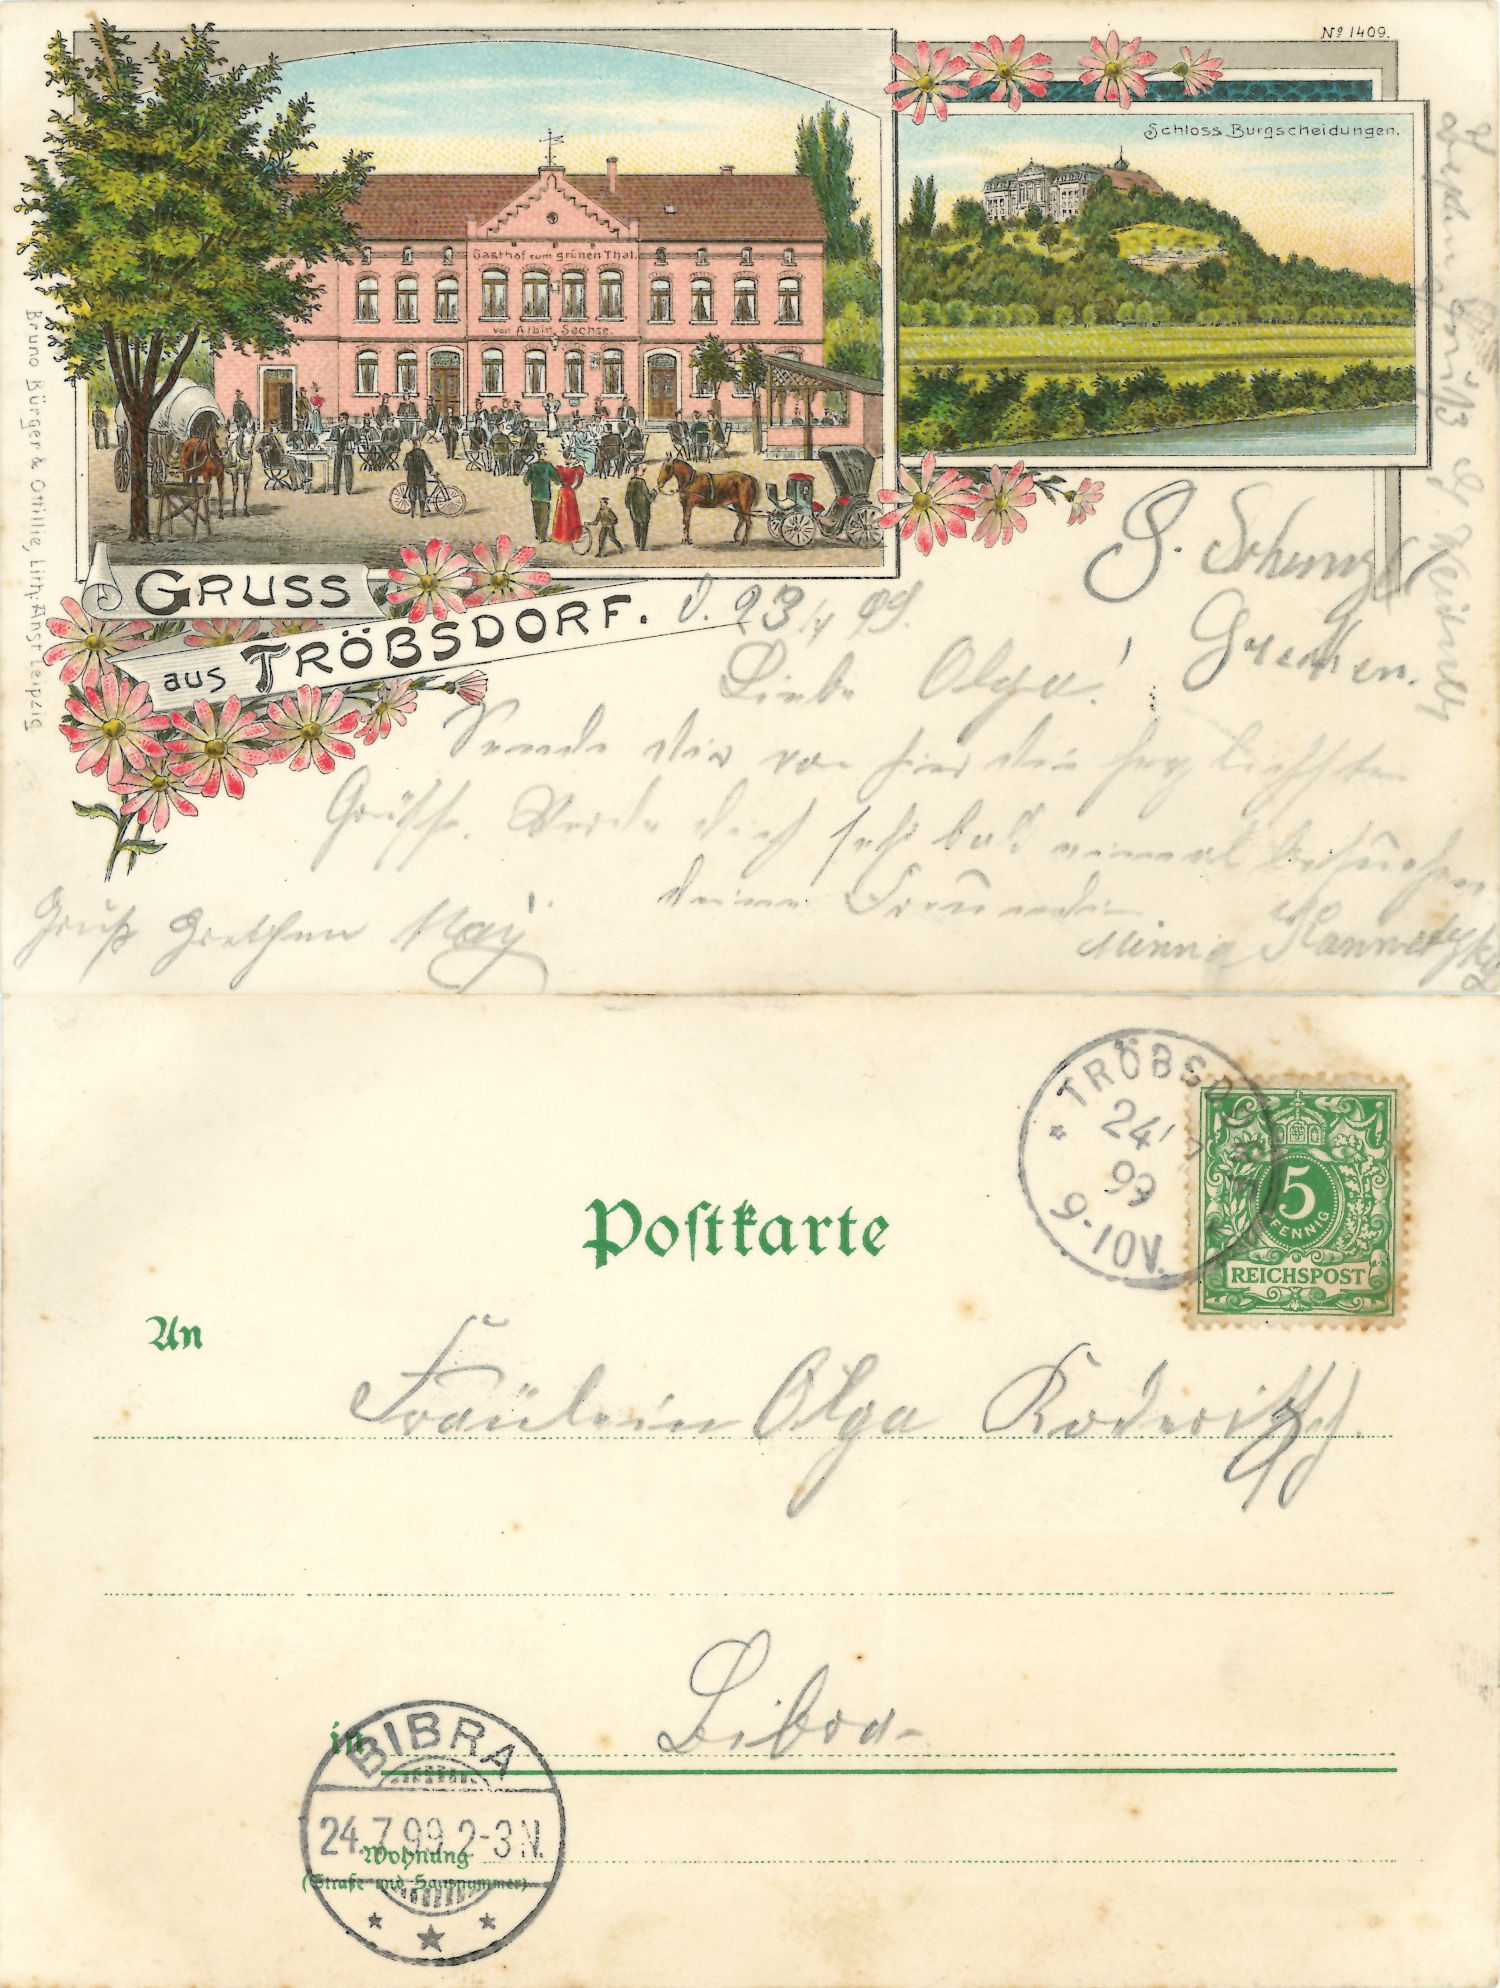 Nº 1409.
Schloss Burgscheidungen.
Gasthof zum grünen Thal.
von Albin Sachse.
Bruno Bürger & Ottillie, Lith. Anst. Leipzig
GRUSS
aus TRÖBSDORF.
d. 23/7 99.
Liebe Olga!
Sende dir von hier die herzlichsten
Grüße. Werde dich sehr bald einmal besuchen
deine Freundin.
Minna
Gruß Gretchen May
TRÖBSDORF
24 7
99
9-10V.
5
PFENNIG
REICHSPOST
Postkarte
An
Fräulein Olga
in Bibra
BIBRA
24.7.99 2-3N.
Wohnung
(Straße und Hausnummer)